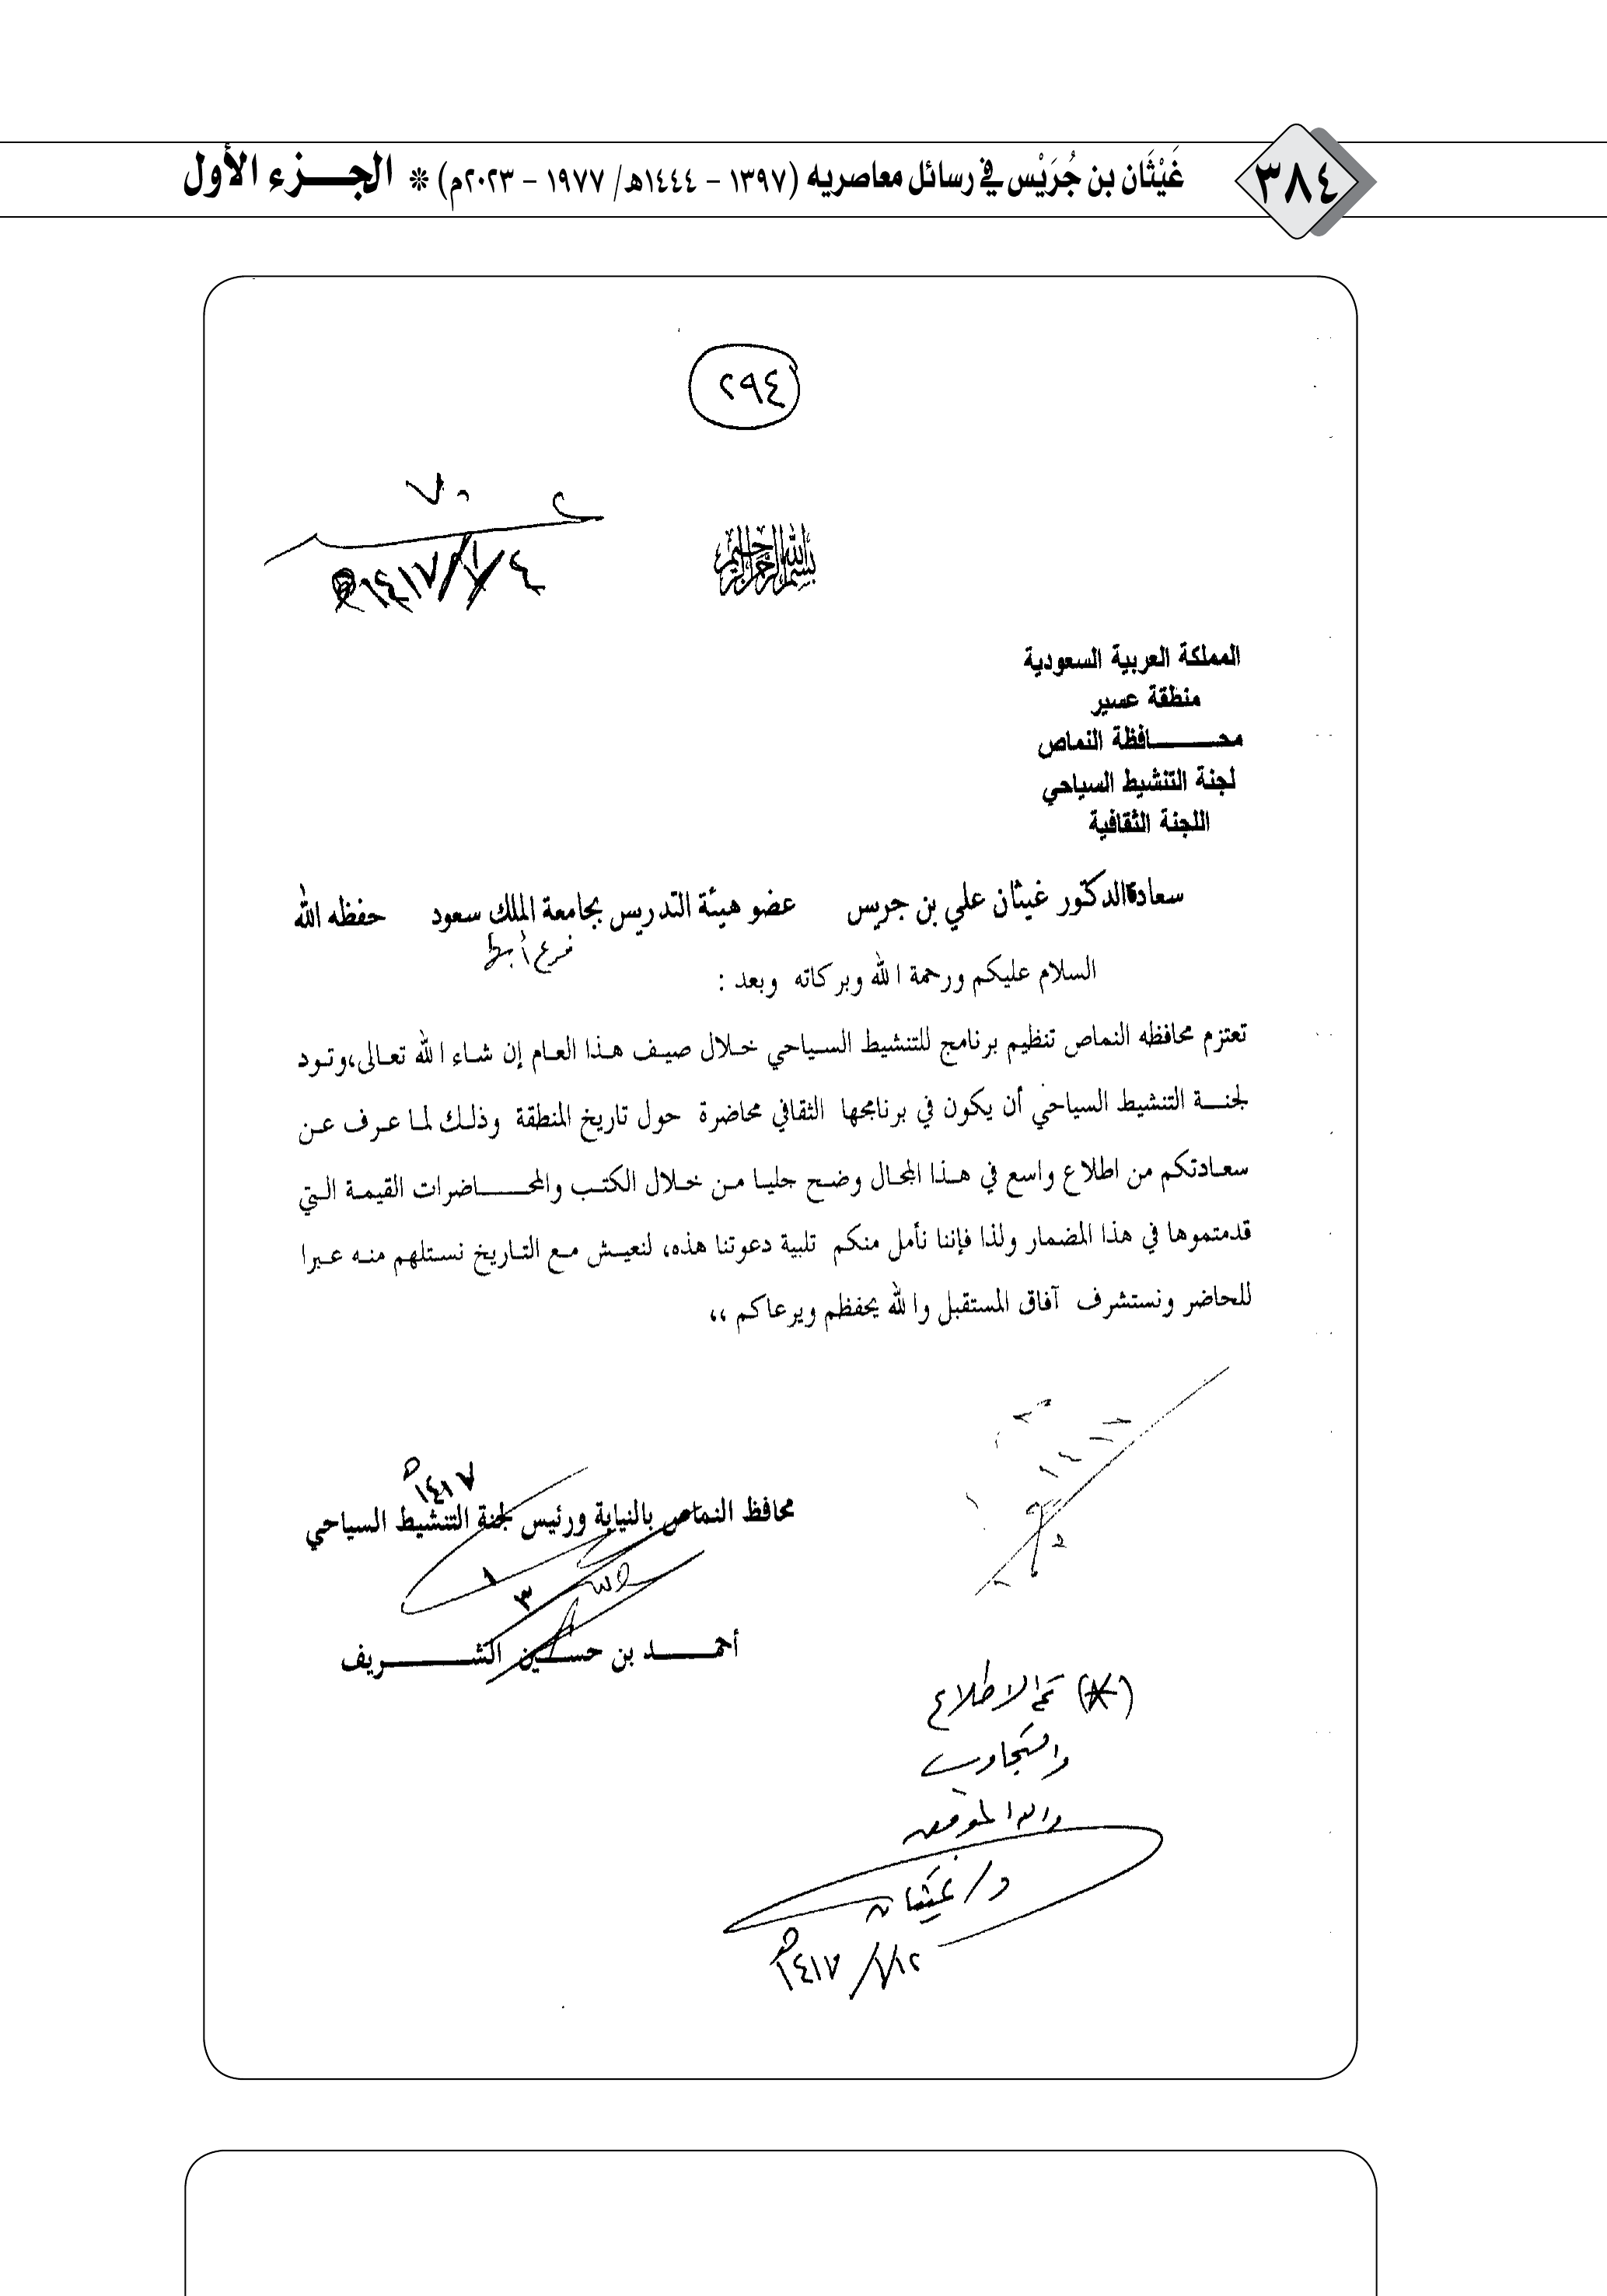 ٣٨٤
غَيْثَان بن جُرَيْس في رسائل معاصريه (١٣٩٧ - ١٤٤٤هـ/ ١٩٧٧ - ٢٠٢٣م) * الجـــزء الأول
٢٩٤
٧٠
١٤١٧/١/٤هـ
بسم الله الرحمن الرحيم
المملكة العربية السعودية
منطقة عسير
محـــــافظة النماص
لجنة التنشيط السياحي
اللجنة الثقافية
سعادة الدكتور غيثان علي بن جريس عضو هيئة التدريس بجامعة الملك سعود حفظه الله
فرع أبها
السلام عليكم ورحمة الله وبركاته وبعد :
تعتزم محافظه النماص تنظيم برنامج للتنشيط السياحي خلال صيف هذا العام إن شاء الله تعالى،وتود
لجنــة التنشيط السياحي أن يكون في برنامجها الثقافي محاضرة حول تاريخ المنطقة وذلك لما عرف عن
سعادتكم من اطلاع واسع في هذا المجال وضح جليا من خلال الكتب والمحــــاضرات القيمة التي
قدمتموها في هذا المضمار ولذا فإننا نأمل منكم تلبية دعوتنا هذه، لنعيش مع التاريخ نستلهم منه عبرا
للحاضر ونستشرف آفاق المستقبل والله يحفظم ويرعاكم ،،
١٤١٧هـ
محافظ النماص بالنيابة ورئيس لجنة التنشيط السياحي
١
٣
أحمـــــد بن حســـين الشــــــريف
(*) تم الاطلاع
والتجاوب
والله الموفق
د/ غيثان
١٤١٧/١/١٢هـ